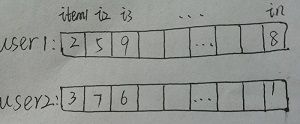 item1 i2 i3 ... in
user1: 2 5 9 ... 8
user2: 3 7 6 ... 1